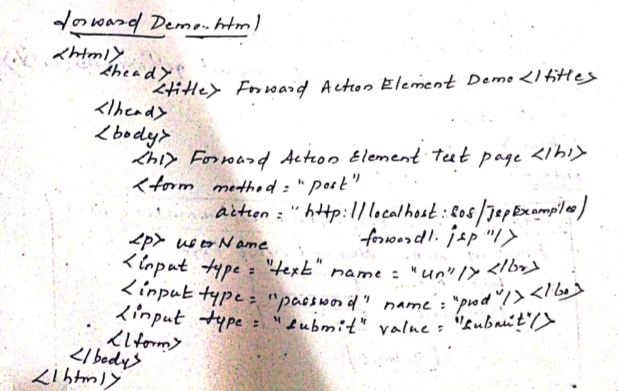 forward Demo.html
<html>
<head>
<title> Forward Action Element Demo </title>
</head>
<body>
<h1> Forward Action Element Test page </h1>
<form method = "post"
action = "http://localhost:808/JspExamples/
forward1.jsp"/>
<p> userName
<input type = "text" name = "un"/> </br>
<input type = "password" name = "pwd"/> </br>
<input type = "submit" value = "submit"/>
</form>
</body>
</html>